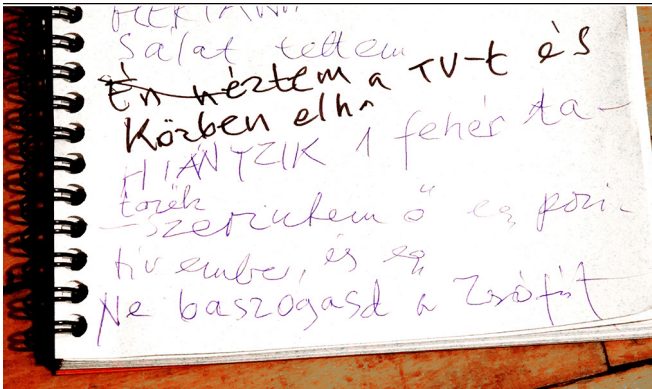 Salat tettem
Én néztem a TV-t és
Közben elh
HIÁNYZIK 1 fehér ta-
törek
-szerintem ő eg pozi-
tiv ember, és eg
Ne baszogasd a Zsófit